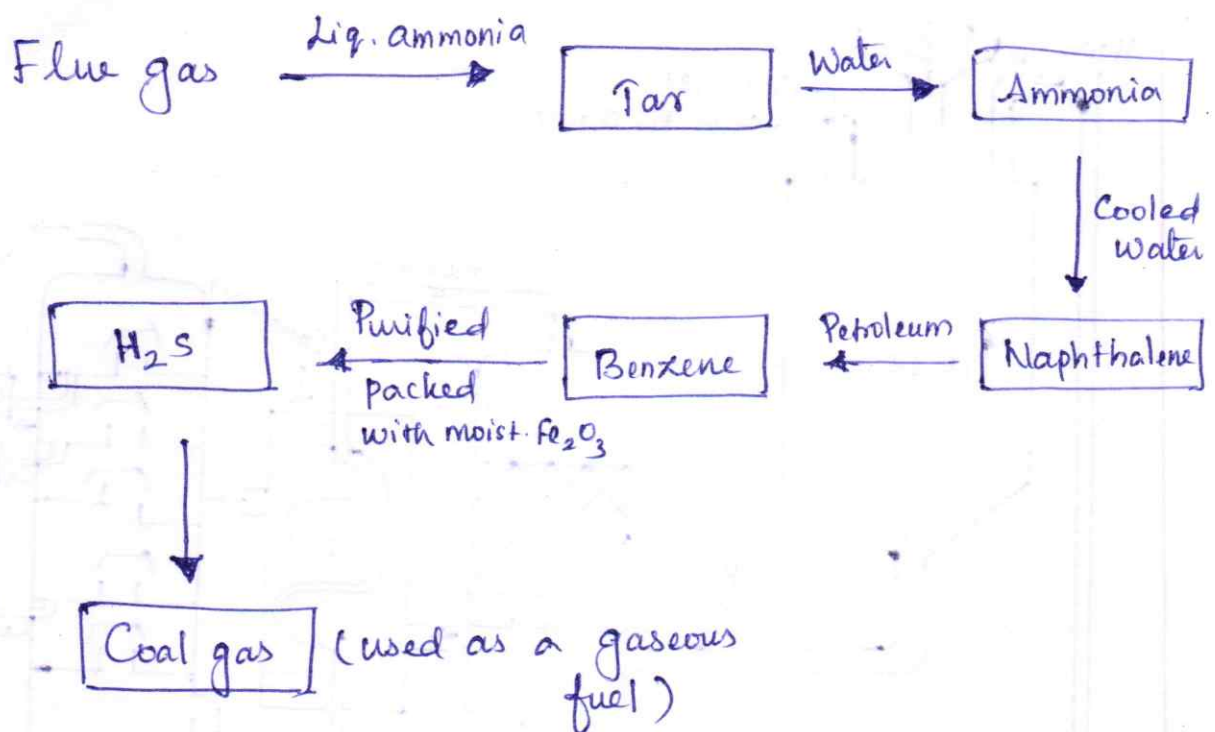 Flue gas
Liq. ammonia
Tar
Water
Ammonia
Cooled
water
Naphthalene
Petroleum
Benzene
Purified
packed
with moist. Fe₂O₃
H₂S
Coal gas (used as a gaseous
fuel)